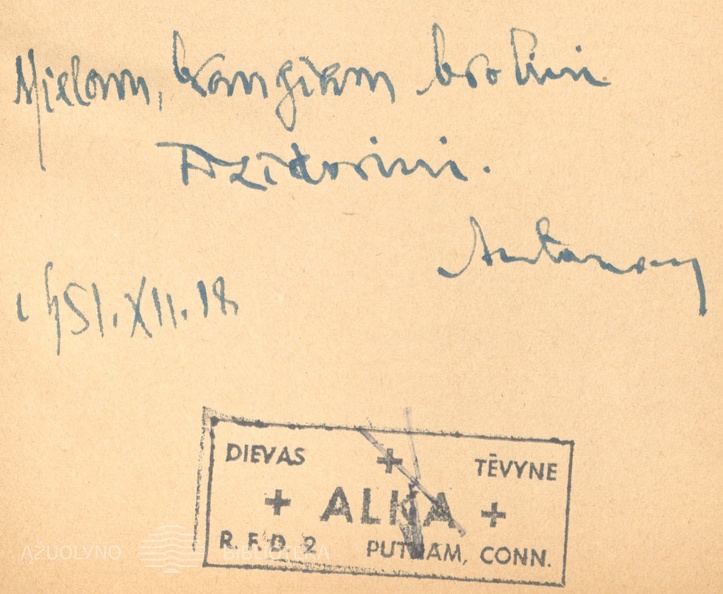 Mielam, brangiam broliui
Izidoriui.
Antanas
1951.XII.18
DIEVAS + TĖVYNE
+ ALKA +
R.F.D. 2 PUTNAM, CONN.
AŽUOLYNO BIBLIOTEKA